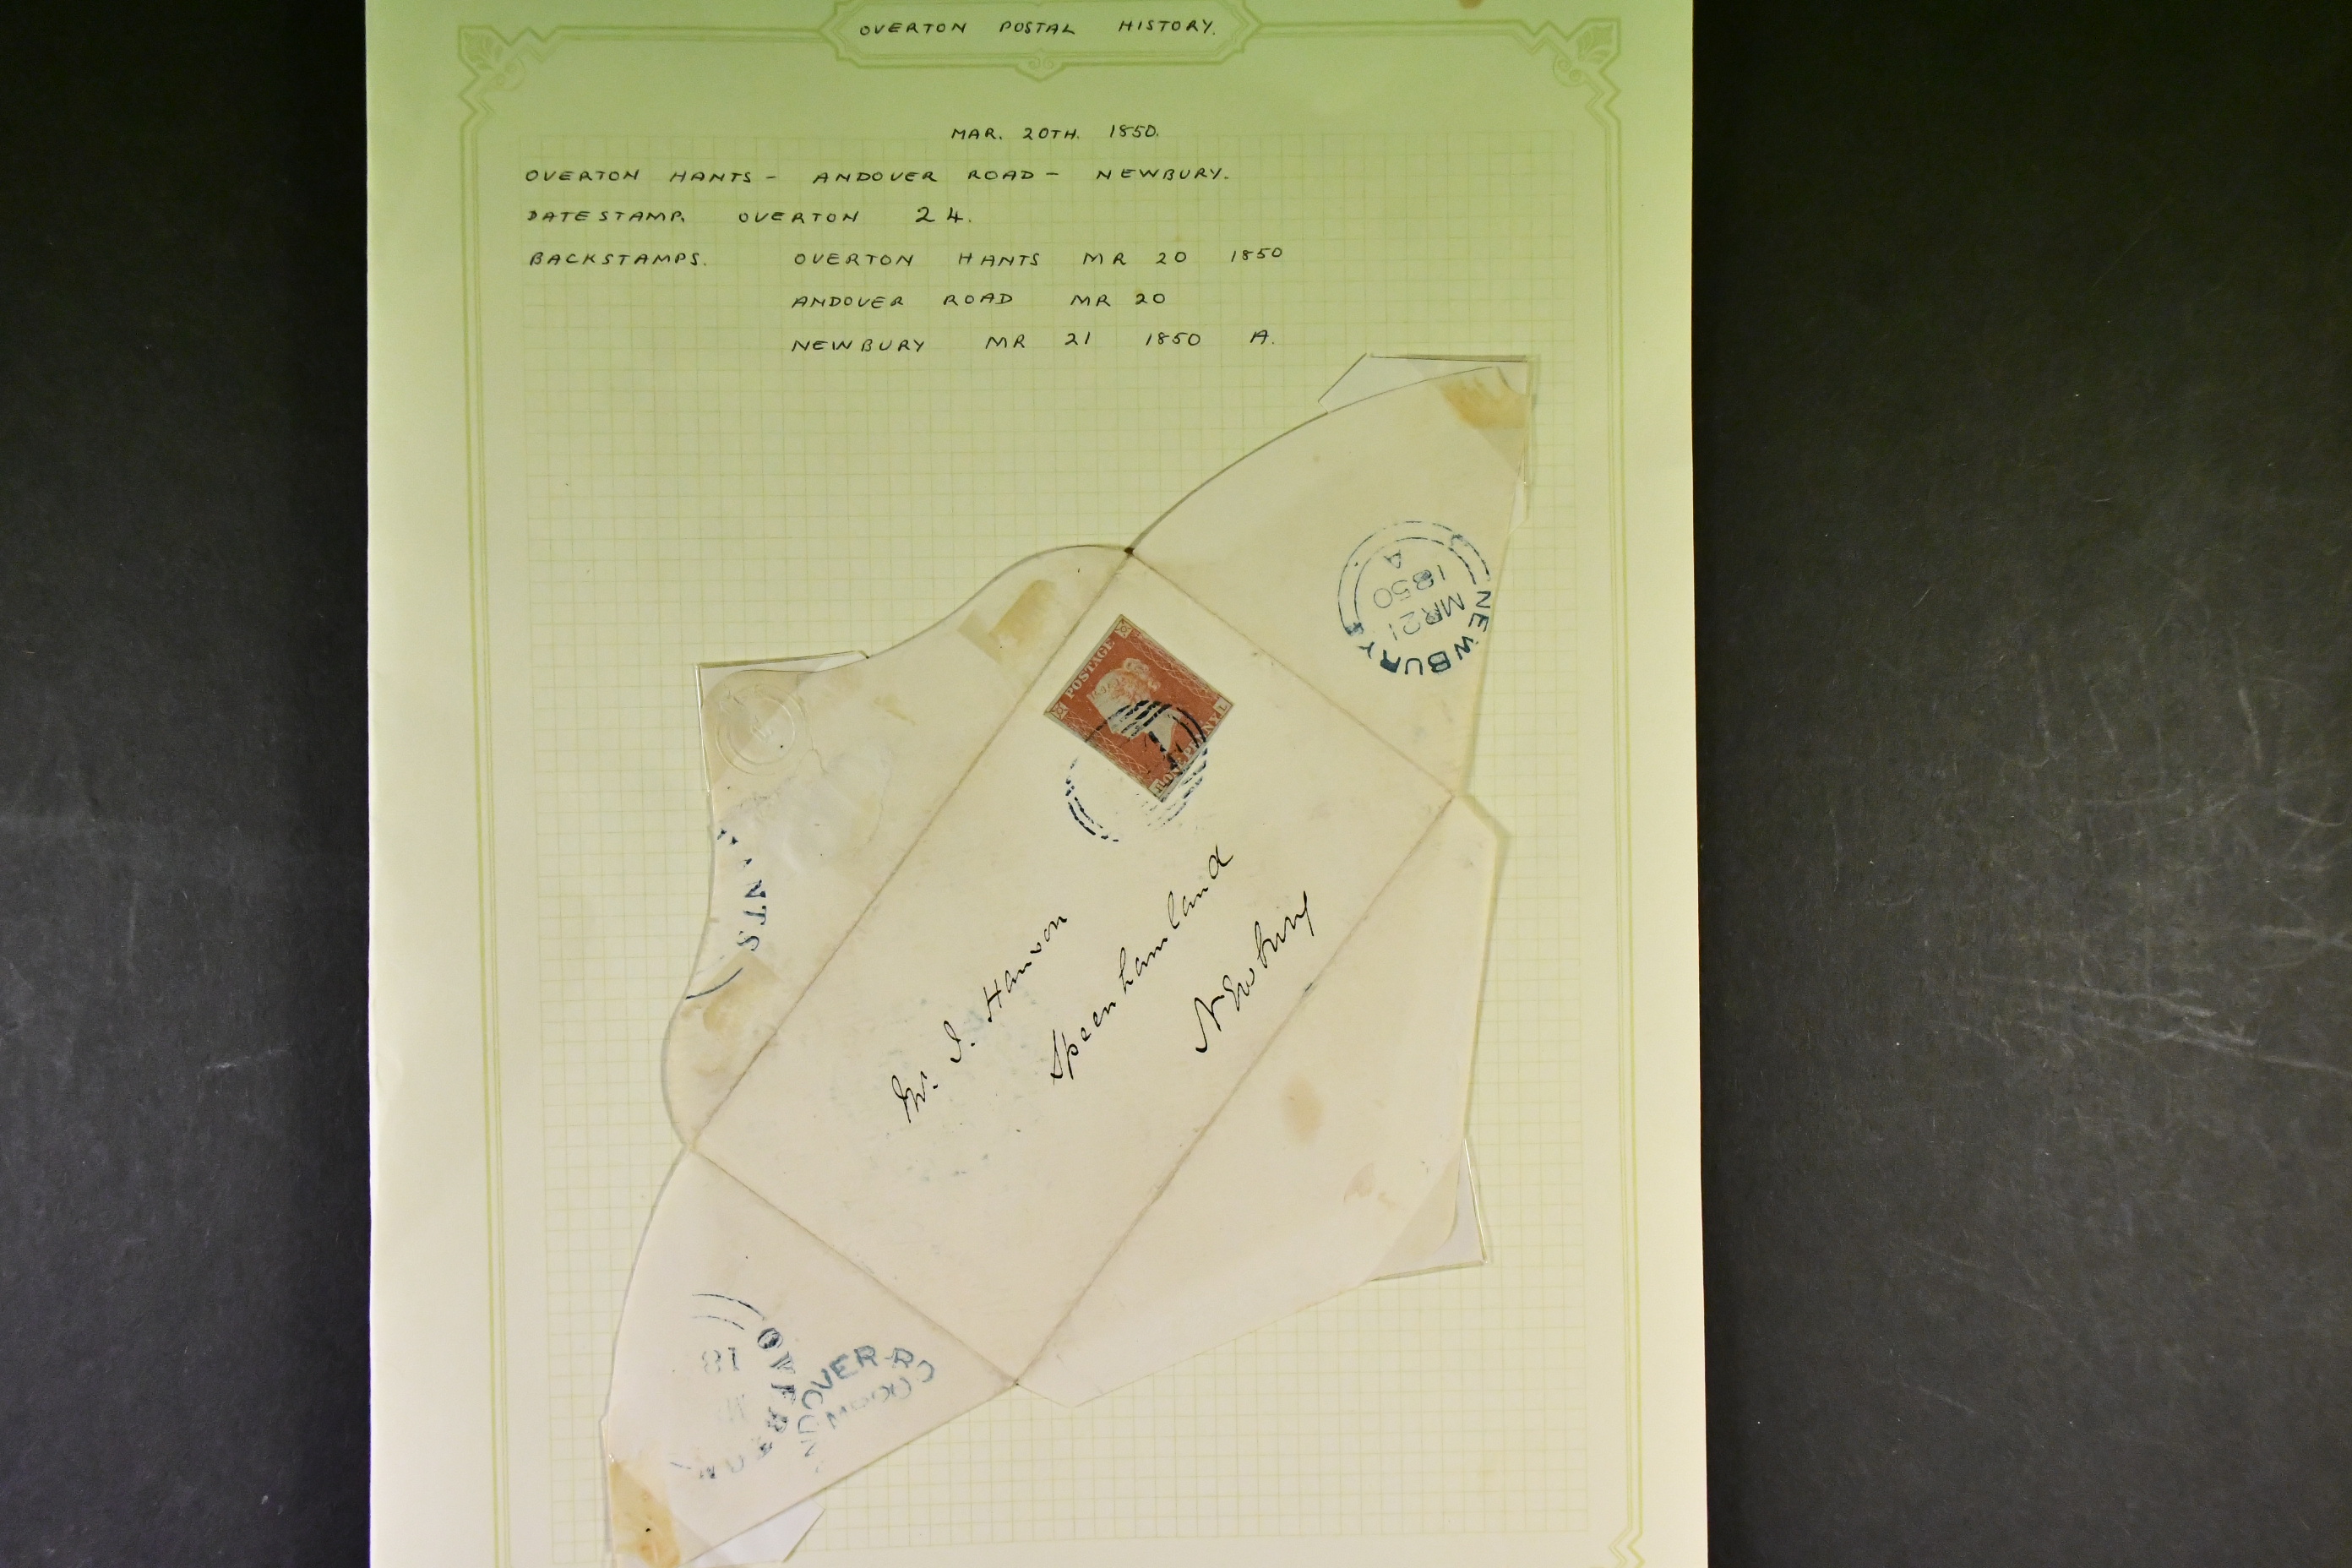 OVERTON POSTAL HISTORY.
MAR. 20TH. 1850.
OVERTON HANTS - ANDOVER ROAD - NEWBURY.
DATESTAMP. OVERTON 24.
BACKSTAMPS. OVERTON HANTS MR 20 1850
ANDOVER ROAD MR 20
NEWBURY MR 21 1850 A.
NEWBURY
MR 21
1850
A
POSTAGE
ONE PENNY
L
Mr. J.
Speenhamland
Newbury
18